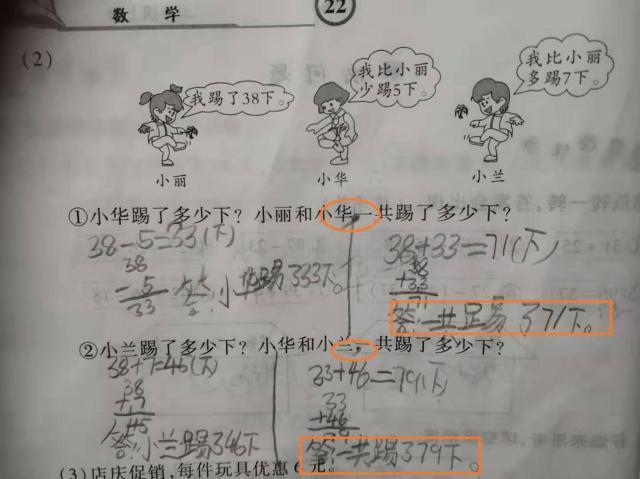 数 学
22
(2)
我踢了38下。
我比小丽
少踢5下。
我比小丽
多踢7下。
小丽
小华
小兰
①小华踢了多少下?小丽和小华一共踢了多少下?
38-5=33(下)
38
-5
33
答:小华踢了33下。
38+33=71(下)
38
+33
71
答:一共踢了71下。
②小兰踢了多少下?小华和小兰一共踢了多少下?
38+7=46(下)
38
+7
45
答:小兰踢了46下
33+46=79(下)
33
+46
79
答:一共踢了79下。
(3)店庆促销,每件玩具优惠6元。